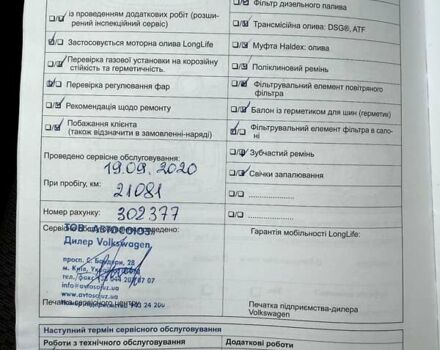 із проведенням додаткових робіт (розши-
рений інспекційний сервіс)
Застосовується моторна олива LongLife
Перевірка газової установки на корозійну
стійкість та герметичність.
Перевірка регулювання фар
Рекомендація щодо ремонту
Побажання клієнта
(також відзначити в замовленні-наряді)
Проведено сервісне обслуговування:
19.09.2020
При пробігу, км:
21081
Номер рахунку:
302377
ТОВ "АВТОСОЮЗ"
Дилер Volkswagen
просп. С. Бандери, 28
м. Київ,
info@avtosojuz.ua
www.avtosojuz.ua
Фільтр дизельного палива
Трансмісійна олива: DSG®, ATF
Муфта Haldex: олива
Поліклиновий ремінь
Фільтрувальний елемент повітряного
фільтра
Балон із герметиком для шин (герметик)
Фільтрувальний елемент фільтра в сало-
ні
Зубчастий ремінь
Свічки запалювання
Гарантія мобільності LongLife:
Печатка підприємства-дилера
Volkswagen
Наступний термін сервісного обслуговування
Роботи з технічного обслуговування
Додаткові роботи